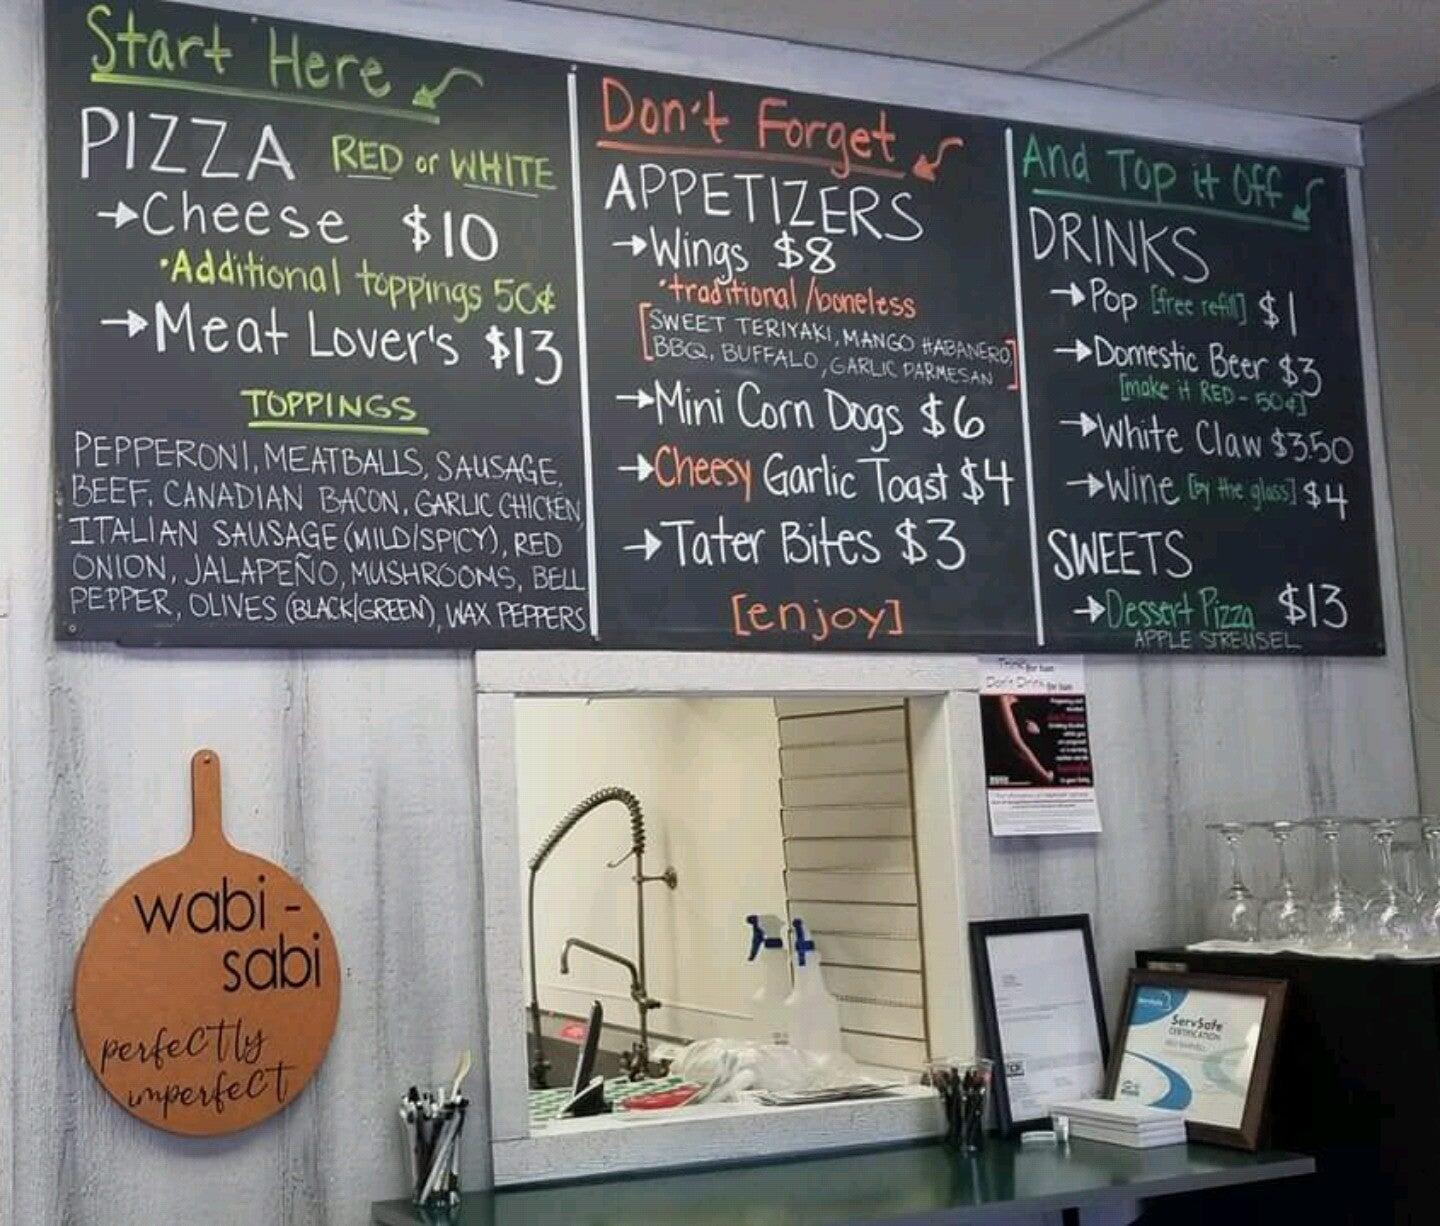 Start Here
PIZZA RED or WHITE
Cheese $10
·Additional toppings 50¢
Meat Lover's $13
TOPPINGS
PEPPERONI, MEATBALLS, SAUSAGE,
BEEF, CANADIAN BACON, GARLIC CHICKEN,
ITALIAN SAUSAGE (MILD/SPICY), RED
ONION, JALAPEÑO, MUSHROOMS, BELL
PEPPER, OLIVES (BLACK/GREEN), WAX PEPPERS
Don't Forget
APPETIZERS
Wings $8
·traditional/boneless
[SWEET TERIYAKI, MANGO HABANERO,
BBQ, BUFFALO, GARLIC PARMESAN]
Mini Corn Dogs $6
Cheesy Garlic Toast $4
Tater Bites $3
[enjoy]
And Top it Off
DRINKS
Pop [free refill] $1
Domestic Beer $3
[make it RED - 50¢]
White Claw $3.50
Wine [by the glass] $4
SWEETS
Dessert Pizza $13
APPLE STREUSEL
Think for two
Don't Drink for two
wabi-
sabi
perfeCTly
imperfeCT
ServSafe
ServSafe
CERTIFICATION